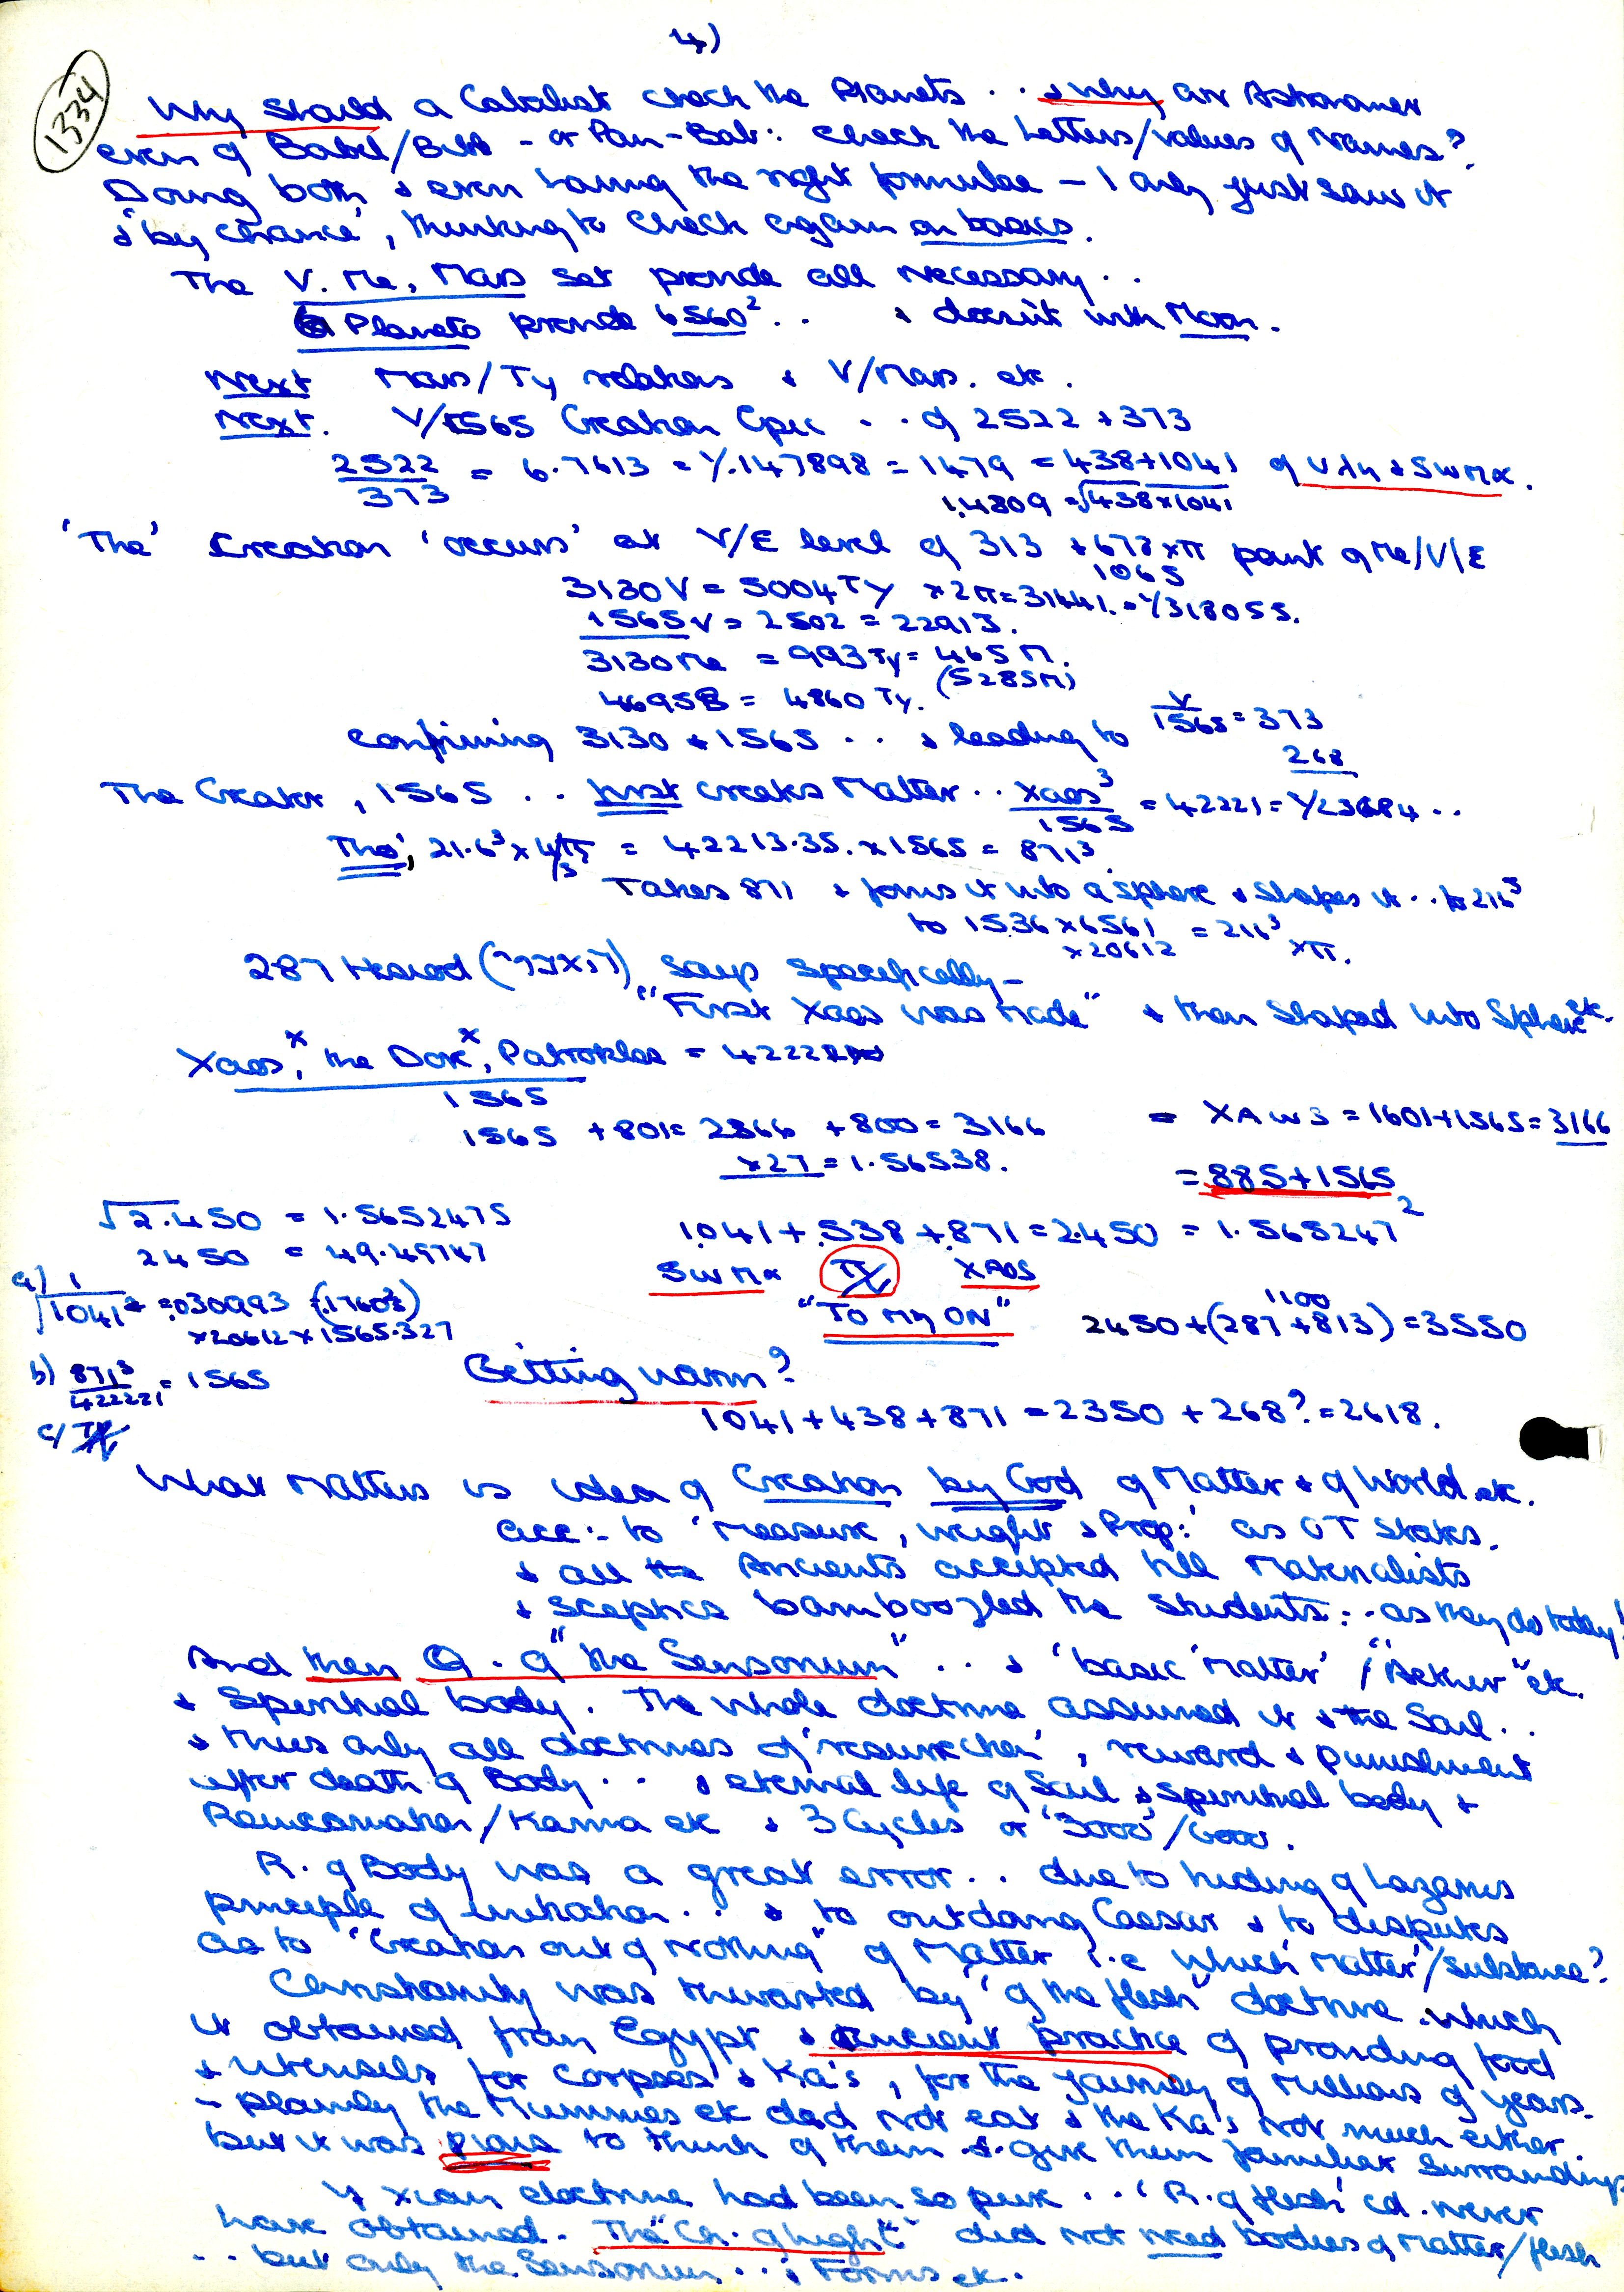 4)
1334
Why should a Cabalist check the Planets . . & why an Astronomer
even of Babel/ - or Pan-Bab: check the Letters/values of Names?
Doing both, & even having the right formulae - I only just saw it
& 'by chance', thinking to check again on basics.
The V. Me, Mars set provide all necessary . .
Planets provide 6560² . . & do it with Moon.
Next Mars/Ty relations & V/Mars. etc.
Next. V/1565 Creation Epic . . of 2522 + 373
2522/373 = 6.7613 = 1/.147898 = 1479 = 438+1041 of & SWMα.
1.4809 = √438×1041
'The' Creation 'occurs' at V/E level of 313 + 678×π point of Me/V/E
1065
3130V = 5004Ty ×2π=31441.=1/318055.
1565V = 2502 = 22913.
3130Me = 993Ty = 465M.
(5285M)
4695E = 4860 Ty.
Confirming 3130 + 1565 . . & leading to V/1565 = 373
268
The Creator, 1565 . . first creates Matter . . Xaos³/1565 = 42221 = 1/23684 . .
Tho', 21.6³ × 4π/3 = 42213.35. ×1565 = 871³
Takes 871 & forms it into a sphere & shapes it . . to 216³
to 1536×6561 = 216³
×20612 ×π.
287 Hesiod says specifically -
"First Xaos was made" & then shaped into Sphere etc.
Xaos, the Dove, Patroklos = 42222
1565
1565 + 801 = 2366 + 800 = 3166
= XAWS = 1601+1565 = 3166
×27 = 1.56538.
= 885+1565
√2.450 = 1.5652475
1.041+.538+.871 = 2.450 = 1.565247²
2450 = 49.49747
SWMα XAOS
a) 1/√1041² = .030993 (.1760³)
×20612×1565.327
"To My ON"
2450+(287+813) = 3550
1100
b) 871³/422221 = 1565
Getting warm?
1041+438+871 = 2350 + 268? = 2618.
c)
What matters is idea of Creation by God of Matter & of World etc.
acc: to 'Measure, weight & Prop:' as OT states.
& all Ancients accepted till Materialists
& Sceptics bamboozled the students: . as they do today!
And then Q. of "the Sensorium" . . & 'basic 'Matter' / "Aether" etc.
& Spiritual body. The whole doctrine assumed it & the Soul . .
& thus only all doctrines of 'resurrection', reward & punishment
after death of Body . . & eternal life of Soul & spiritual body &
Reincarnation/Karma etc & 3 Cycles or '3000'/6000.
R. of Body was a great error . . due to hiding of Lazarus
principle of initiation . . & to outdoing Caesar & to disputes
as to "Creation out of Nothing" of Matter i.e which 'Matter'/substance?
Christianity was thwarted by "of the flesh" doctrine . which
it obtained from Egypt & ancient practice of providing food
& utensils for Corpses & Ka's, for the journey of Millions of years.
- plainly the Mummies etc did not eat & the Ka's not much either.
but it was pious to think of them & give them familiar surroundings
If Xian doctrine had been so pure . . 'R. of flesh' cd. never
have obtained. The "Ch. of Light" did not need bodies of Matter/flesh
. . but only the Sensorium . . & Forms etc . .